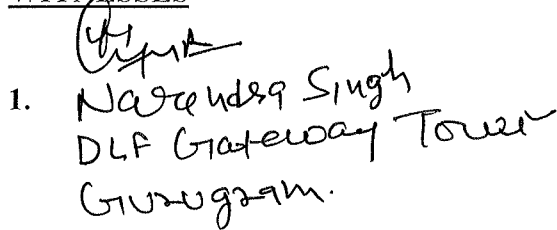 WITNESSES
1. Narendra Singh
DLF Gateway Tower
Gurugram.